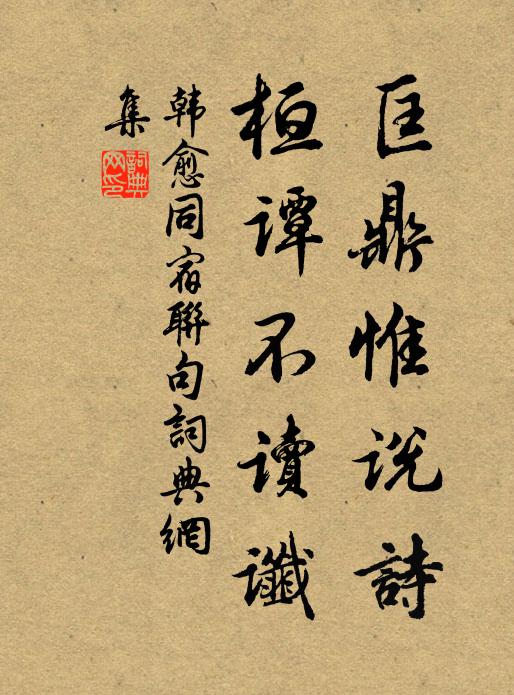 匡鼎惟说詩
桓谭不读讖
韩愈同宿聯句詞典網
集
詞典
网印